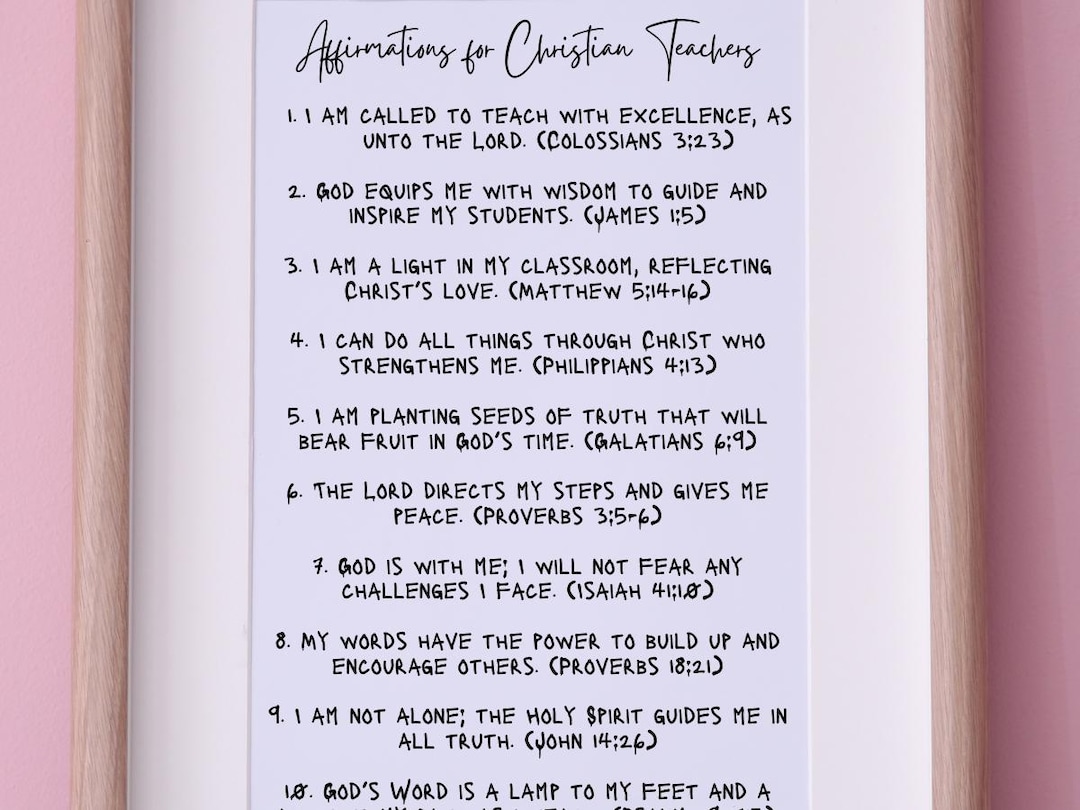 Affirmations for Christian Teachers
1. I AM CALLED TO TEACH WITH EXCELLENCE, AS
UNTO THE LORD. (COLOSSIANS 3:23)
2. GOD EQUIPS ME WITH WISDOM TO GUIDE AND
INSPIRE MY STUDENTS. (JAMES 1:5)
3. I AM A LIGHT IN MY CLASSROOM, REFLECTING
CHRIST'S LOVE. (MATTHEW 5:14-16)
4. I CAN DO ALL THINGS THROUGH CHRIST WHO
STRENGTHENS ME. (PHILIPPIANS 4:13)
5. I AM PLANTING SEEDS OF TRUTH THAT WILL
BEAR FRUIT IN GOD'S TIME. (GALATIANS 6:9)
6. THE LORD DIRECTS MY STEPS AND GIVES ME
PEACE. (PROVERBS 3:5-6)
7. GOD IS WITH ME; I WILL NOT FEAR ANY
CHALLENGES I FACE. (ISAIAH 41:10)
8. MY WORDS HAVE THE POWER TO BUILD UP AND
ENCOURAGE OTHERS. (PROVERBS 18:21)
9. I AM NOT ALONE; THE HOLY SPIRIT GUIDES ME IN
ALL TRUTH. (JOHN 14:26)
10. GOD'S WORD IS A LAMP TO MY FEET AND A